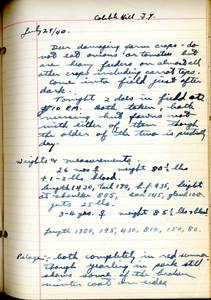 Cobble Hill, J.Y.
July 29/40.
Deer damaging farm crops - do
not eat onions or tomatoes but
are heavy feeders on almost all
other crops including carrot tips.
Come into field just after
dark.
Tonight 2 does in field at
9:10 P.M. Both taken, both
nursing but fawns not
with either of them though
the older of the two is practically
dry.
Weights & measurements
26 mos ♀ weight 80½ lbs
+ 1-2 lbs blood.
length 1420, tail 170, h.f. 435, height
at shoulder 805, ear 145, girth 100.
guts 25 lbs.
3-4 yrs. ♀ weight 85½ lbs + blood
length 1380, 195, 430, 810, 150, 80.
Pelage: - both completely in red summer
though yearling in park still
shows some of the broken
winter coat on sides